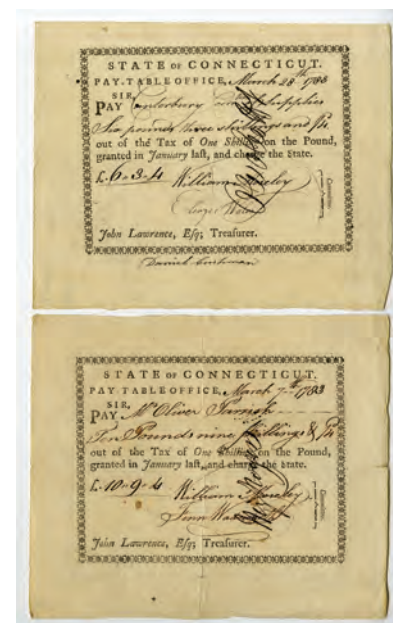 STATE OF CONNECTICUT.
PAY-TABLE OFFICE, March 28th 1783
SIR,
PAY Canterbury Supplies
Six pounds three shillings and /4
out of the Tax of One Shilling on the Pound,
granted in January last, and charge the State.
£ 6-3-4 William Moseley
Eleazer Wales
Committee.
John Lawrence, Esq; Treasurer.
Daniel Cushman
STATE OF CONNECTICUT.
PAY-TABLE OFFICE, March 7th 1783
SIR,
PAY Mr Oliver Parish
Ten Pounds nine Shillings & /4
out of the Tax of One Shilling on the Pound,
granted in January last, and charge the State.
£ 10-9-4 William Moseley
Fenn Wadsworth
Committee.
John Lawrence, Esq; Treasurer.